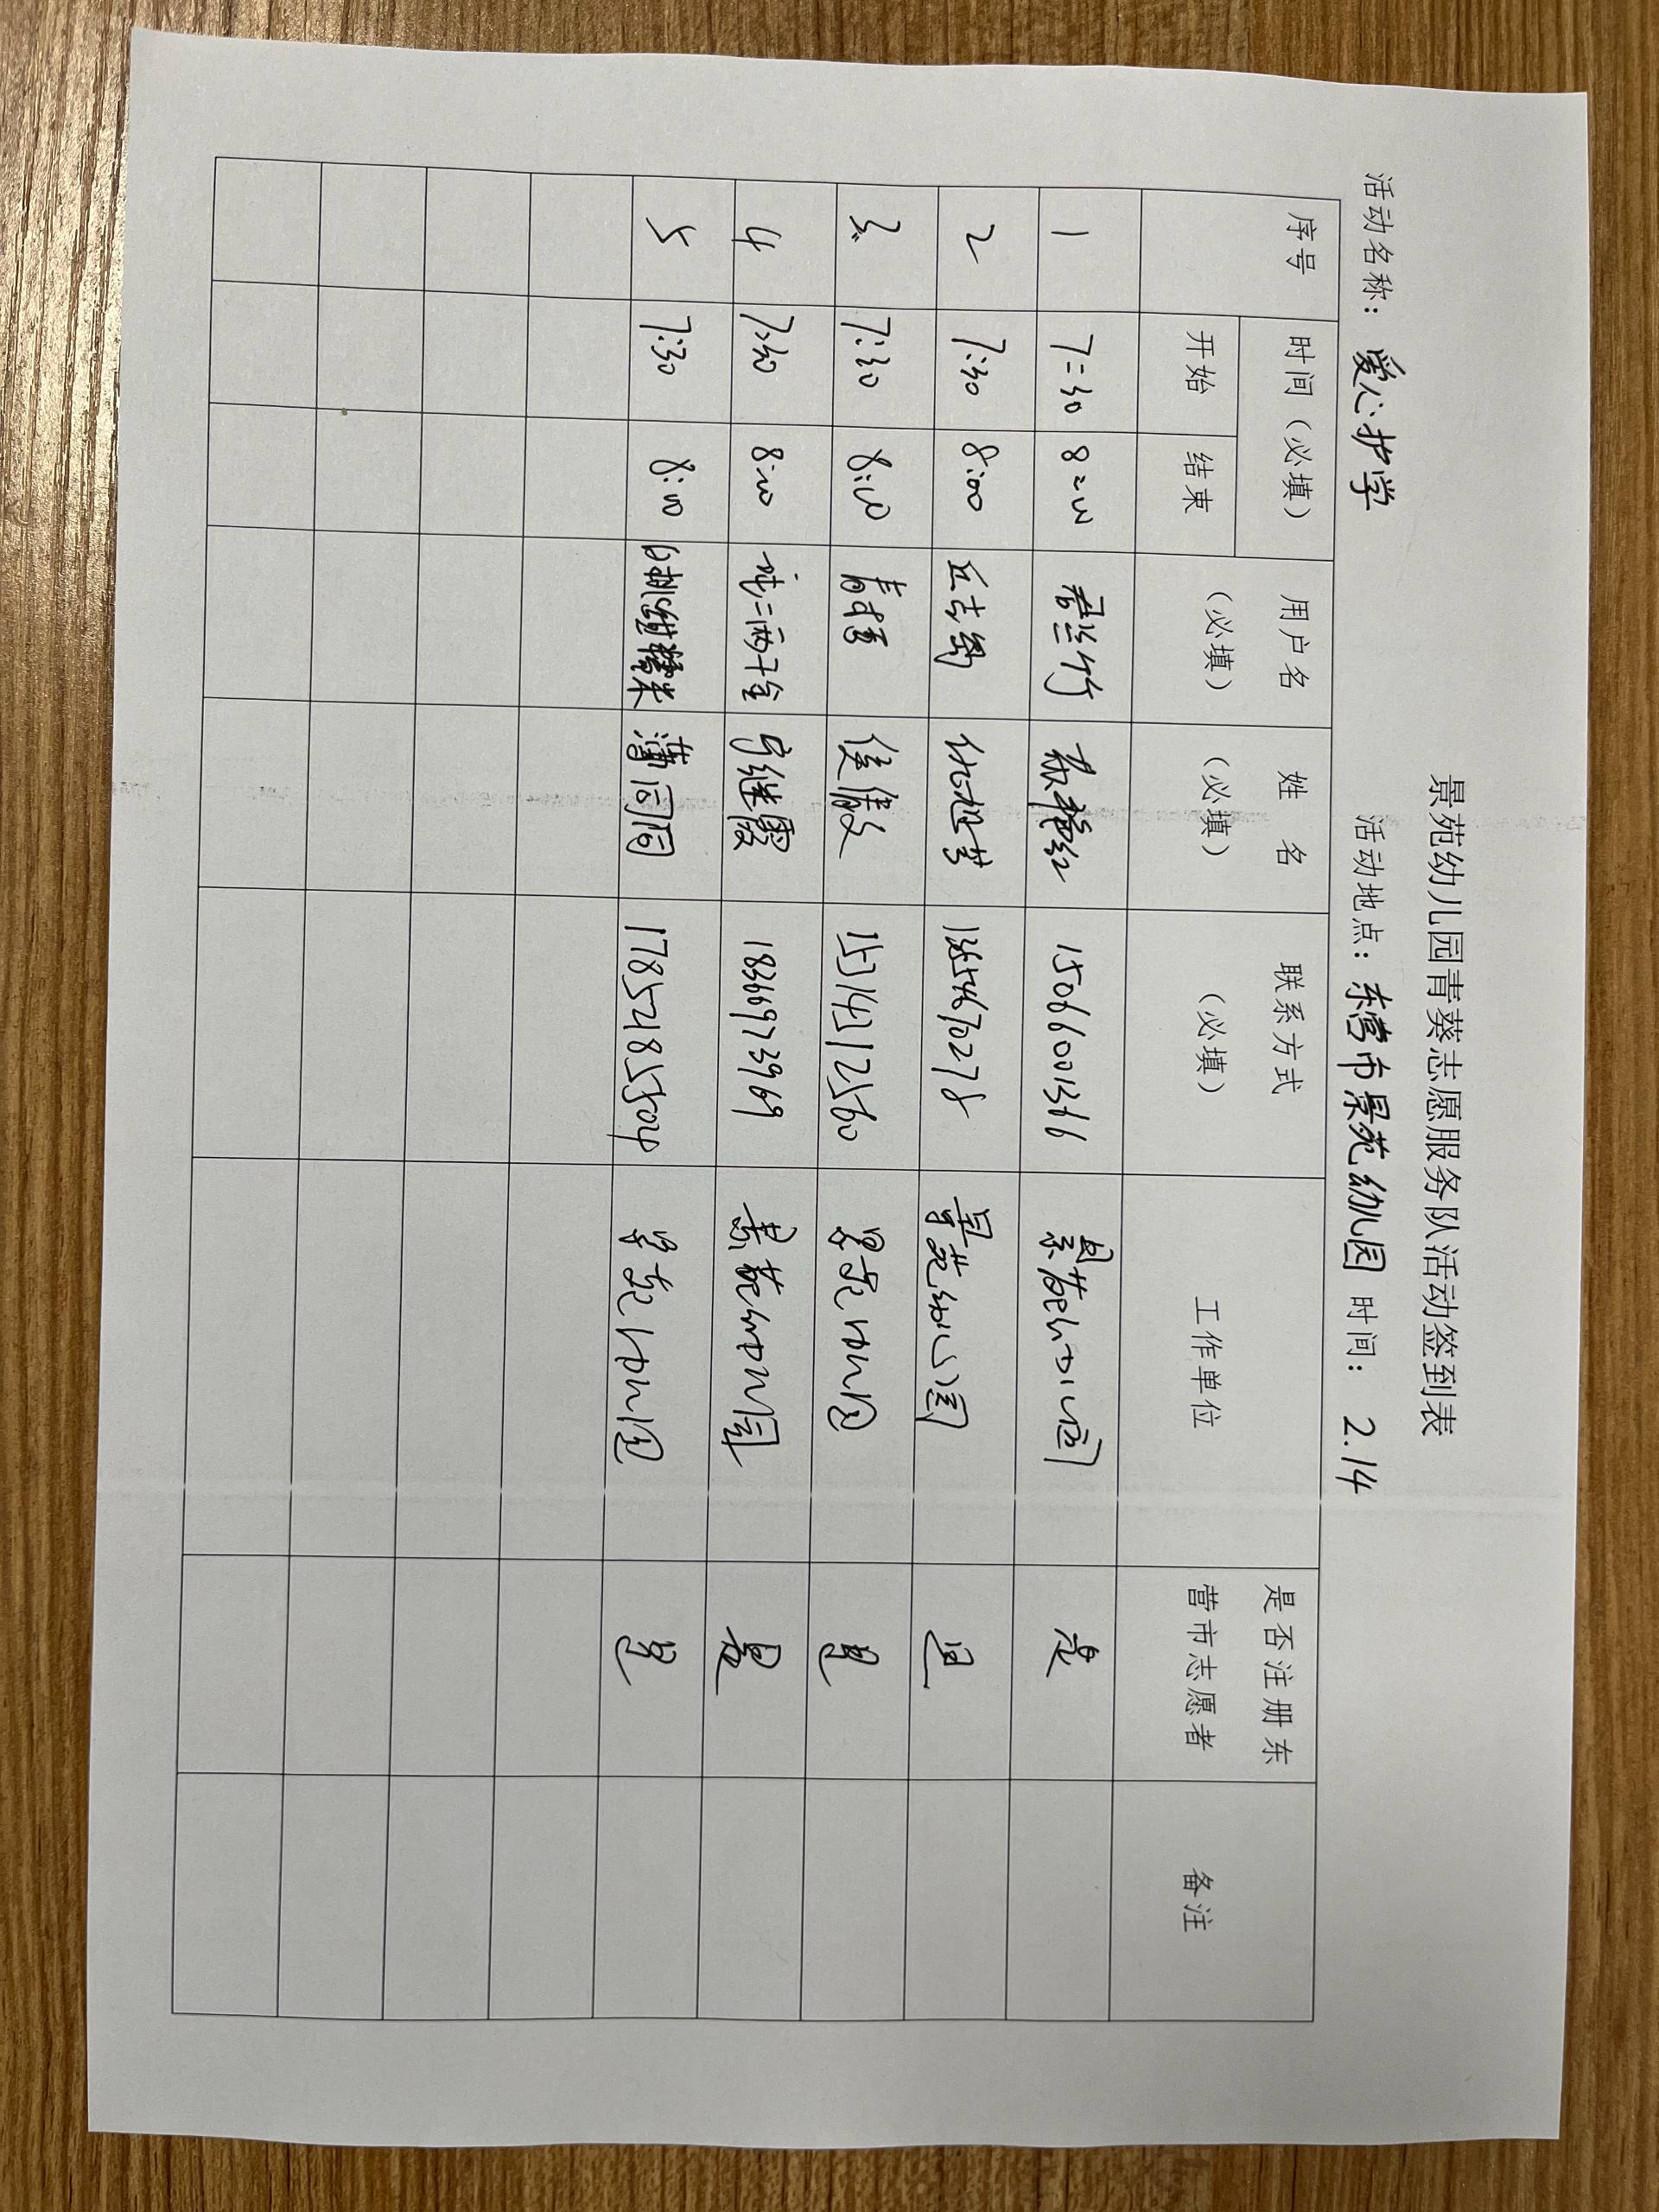 景苑幼儿园青葵志愿服务队活动签到表
活动名称：爱心护学 活动地点：东营市景苑幼儿园 时间：2.14
序号 时间（必填） 用户名（必填） 姓名（必填） 联系方式（必填） 工作单位 是否注册东营市志愿者 备注
开始 结束
1 7:30 8:00 君兰竹 15066001366 景苑幼儿园 是
2 7:30 8:00 丘吉 景苑幼儿园 是
3 7:30 8:00 侯傲 15714112560 景苑幼儿园 是
4 7:30 8:00 吨二两千金 宁继霞 18366973969 景苑幼儿园 是
5 7:30 8:00 薄闫闫 17852185504 景苑幼儿园 是